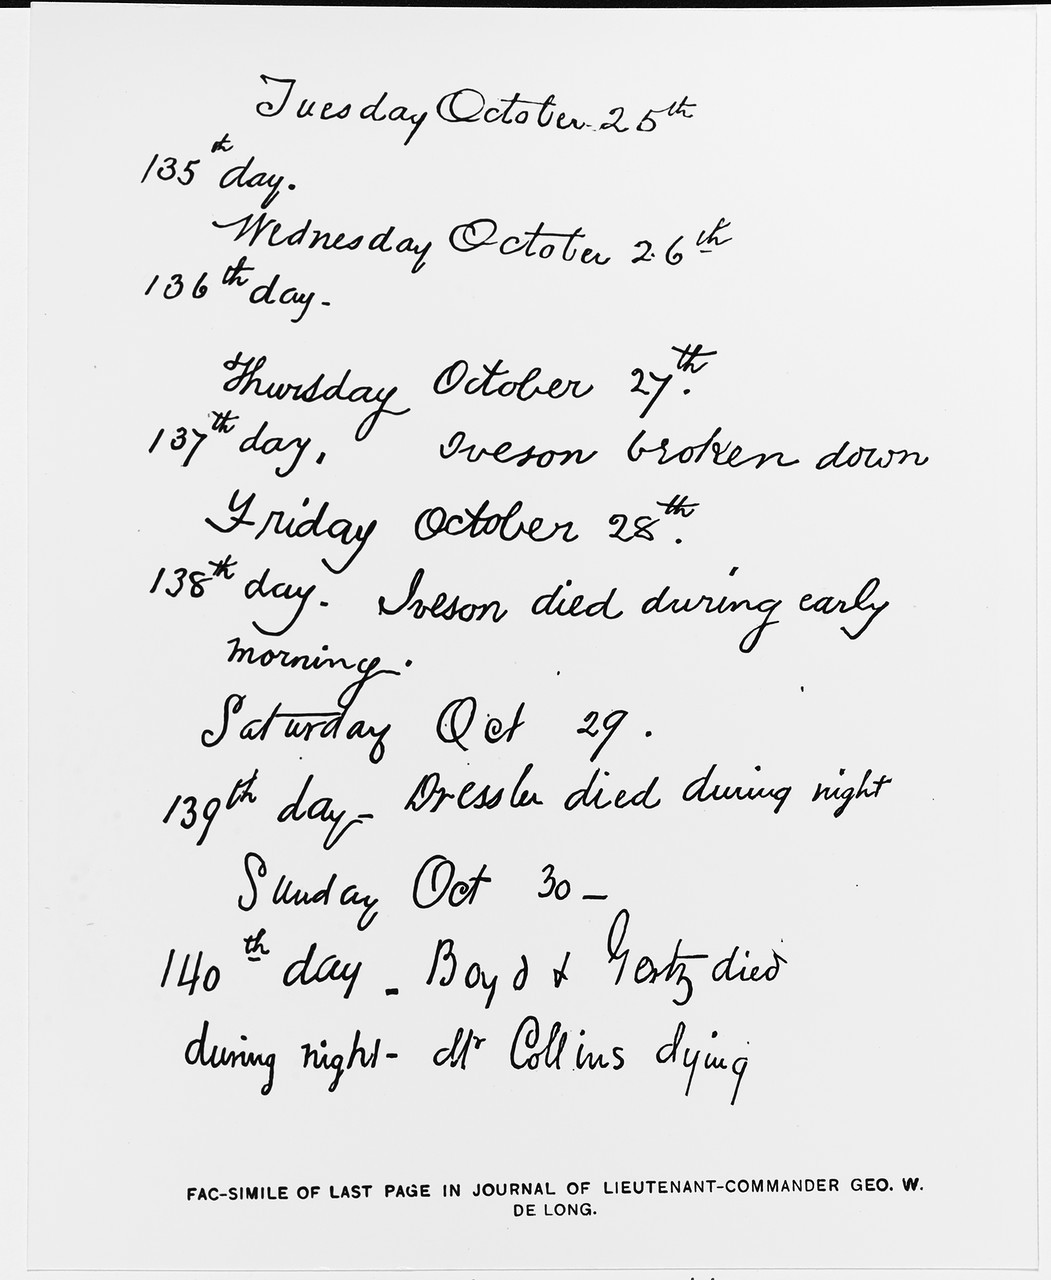 Tuesday October 25th
135th day.
Wednesday October 26th
136th day-
Thursday October 27th.
137th day, Iveson broken down
Friday October 28th.
138th day. Iveson died during early
morning.
Saturday Oct 29.
139th day- Dressler died during night
Sunday Oct 30-
140th day - Boyd & Gortz died
during night- Mr Collins dying
FAC-SIMILE OF LAST PAGE IN JOURNAL OF LIEUTENANT-COMMANDER GEO. W.
DE LONG.